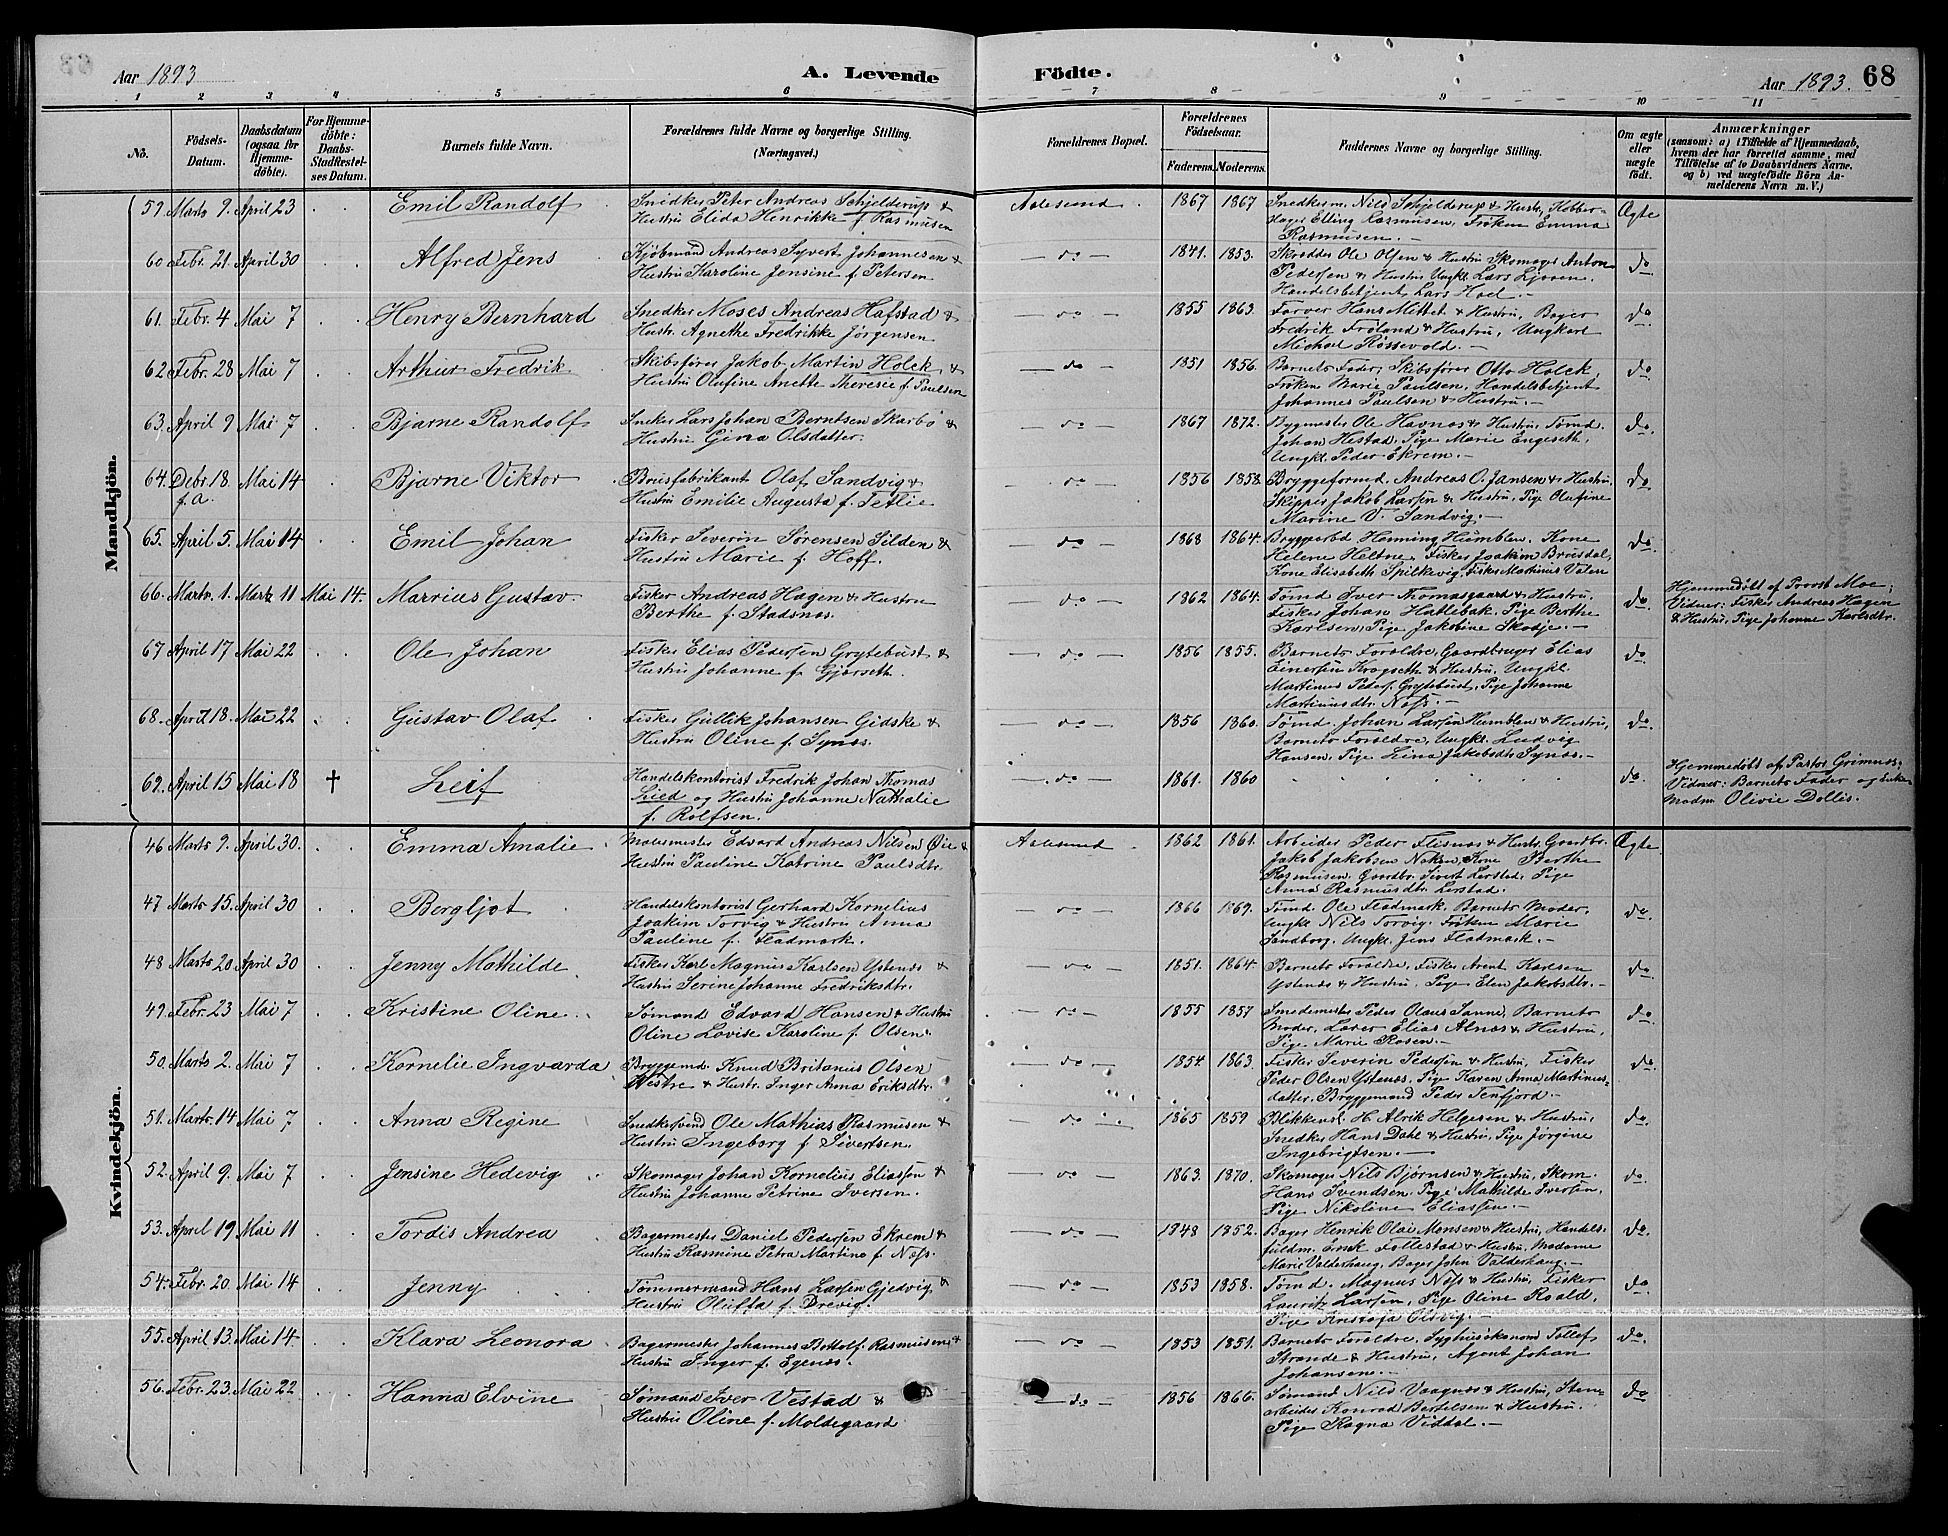 Aar 1893
A. Levende
Födte.
Aar 1893. 68
1 2 3 4 5 6 7 8 9 10 11
No.
Födsels-
Datum.
Daabsdatum
(ogsaa for
Hjemme-
döbte).
For Hjemme-
döbte:
Daabs-
Stadfæstel-
ses Datum.
Barnets fulde Navn.
Forældrenes fulde Navne og borgerlige Stilling.
(Næringsvei.)
Forældrenes Bopæl.
Forældrenes
Födselsaar.
Faderens. Moderens.
Faddernes Navne og borgerlige Stilling.
Om ægte
eller
uægte
födt.
Anmærkninger
(saasom: a) i Tilfælde af Hjemmedaab,
hvem der har forrettet samme, med
Tilföielse af to Daabsvidners Navne,
og b) ved uægtefödte Börn An-
melderens Navn m. V.)
Mandkjön.
59. Marts 9. April 23 Emil Randolf Snedker Peter Andreas Schjelderup & Aalesund 1867 1867 Snedkerm. Nils Schjelderup & Hustr, Ægte
Hustru Elida Henrikke f Rasmusen Elling Rasmusen, Frøken Emma
Rasmusen.
60 Febr. 21 April 30 Alfred Jens Kjøbmand Andreas Syvert Johannesen & do 1841. 1853. Skrædder Ole Olsen & Hustru Skomager Anton do
Hustru Karoline Jensine f. Petersen Pedersen & Hustru Ungkl. Lars
Handelsbetjent Lars Hoel.
61. Febr. 4 Mai 7 Henry Bernhard Snedker Moses Andreas Hafstad & do 1855 1863. Farver Hans Mittet & Hustru, Bager do
Hustr. Agnethe Fredrikke Jörgensen Fredrik Frøland & Hustru, Ungkarl
Michael Røssevold.
62 Febr. 28 Mai 7 Arthur Fredrik Skibsfører Jakob Martin Holck & do 1851 1856. Barnets Fader, Skibsfører Otto Holck, do
Hustru Olufine Anette Theresie f. Paulsen Frøken Marie Paulsen, Handelsbetjent
Johannes Paulsen & Hustru.
63. April 9 Mai 7 Bjarne Randolf Lars Johan Berntsen Skarbö & do 1867 1872. Bygmester Ole Havnas & Hustru, Tømd. do.
Hustru Gina Olsdatter. Johan Hestad, Pige Marie Engeseth,
Ungkl. Peder Ekrem.
64. Debr. 18 Mai 14 Bjarne Viktor Brusfabrikant Olaf Sandvig & do 1856 1858. Bryggeformd. Andreas O. Jansen & Hustru, do
f.a. Hustru Emilie Augusta f. Tetlie Skipper Jakob Larsen & Hustru, Pige Olufine
Marine V. Sandvig.
65. April 5. Mai 14 Emil Johan Fisker Severin Sørensen Silden & do 1868 1864. Henning Humblen, Kone do
Hustru Marie f. Hoff. Helene Heltne, Fisker Joakim Brusdal,
Kone Elisabeth Spilkevig, Fisker Martinus
66. Marts. 1. Marts 11 Mai 14. Marius Gustav Fisker Andreas Hagen & Hustru do 1862 1864. Tømd Iver Thomasgaard & Hustru, do Hjemmedöbt af Provst Moe;
Berthe f. Stadsnæs. Fisker Johan Hatlebak. Pige Berthe Vidner: Fisker Andreas Hagen
Karlsen, Pige Jakobine Skodje. & Hustru, Pige Johanne Karlsdtr.
67 April 17 Mai 22 Ole Johan Fisker Elias Pedersen Grytebust & do 1856 1855. Barnets Forældre, Gaardbruger Elias do.
Hustru Johanne f. Gjørseth. Einersen Krogseth & Hustru, Ungkl
Martinus Peders. Grytebust, Pige Johanne
Martinusdtr Næss.
68. April 18. Mai 22 Gustav Olaf Fisker Gullik Johansen Gidske & do 1856 1860. Tømd. Johan Larsen Humblen & Hustru, do.
Hustru Oline f. Synes. Barnets Forældre, Ungkl. Ludvig
Hansen, Pige Lina Jakobsdtr Synes.
69. April 15 Mai 18 † Leif Handelskontorist Fredrik Johan Thomas do 1861. 1860 do. Hjemmedöbt af Pastor Grimnes;
Lied og Hustru Johanne Nathalie Vidner: Barnets Fader og Enke
f. Rolfsen. Madm. Olivie Dollis.
Kvindekjön.
46 Marts 9. April 30. Emma Amalie Malermester Edvard Andreas Nilsen Øie & Aalesund 1862 1861. Arbeider Peder Flisnes & Hustr. Gaardbr. Ægte
Hustru Pauline Katrine Paulsdtr. Jakob Jakobsen Kone Berthe
Rasmusen, Gaardbr. Sivert Lerstad, Pige
Anna Rasmusdtr Lerstad.
47 Marts 15. April 30 Bergljot Handelskontorist Gerhard Kornelius do 1866 1869. Tømd Ole Fladmark. Barnets Moder, do.
Joakim Torvig & Hustru Anna Ungkl Nils Torvig. Frøken Marie
Pauline f. Fladmark. Sandborg. Ungkl. Jens Fladmark.
48 Marts 20 April 30 Jenny Mathilde Fisker Karl Magnus Karlsen Ystenes & do 1851. 1864. Barnets Forældre, Fisker Arent Karlsen do.
Hustru Serine Johanne Fredriksdtr. Ystenes & Hustru. Pige Elen Jakobsdtr.
49. Febr. 23 Mai 7 Kristine Oline Sømand Edvard Hansen & Hustru do 1855 1857 Smedemester Peder Olaus Sanne, Barnets do
Oline Lovise Karoline f. Olsen. Moder, Lærer Elias Alnæs & Hustru,
Pige Marie Rosen.
50. Marts 2. Mai 7 Kornelie Ingvarda Bryggemd. Knud Britanus Olsen do 1854. 1863. Fisker Severin Pedersen & Hustru, Fisker do.
Westre & Hustr. Inger Anna Eriksdtr. Peder Olsen Ystenes. Pige Karen Anna Martinus-
datter, Bryggemand Peder Tenfjord.
51. Marts 14 Mai 7 Anna Regine Snedkersvend Ole Mathias Rasmusen & do 1865 1859 Blikkensl. H. Alrik Helgesen & Hustru, do.
Hustru Ingeborg f. Sivertsen. Snedker Hans Dahl & Hustru, Pige Jørgine
Ingebrigtsen.
52. April 9. Mai 7 Jensine Hedevig Skomager Johan Kornelius Eliassen & do 1863. 1870. Skomager Nils Bjørnsen & Hustru, Skom. do.
Hustru Johanne Petrine Iversen. Hans Svendsen, Pige Mathilde Iversen,
Pige Nikoline Eliassen.
53. April 19 Mai 11 Tordis Andrea Bagermester Daniel Pedersen Ekrem & do 1848 1852. Bager Henrik Olai Monsen & Hustru, Handels- do.
Hustru Rasmine Petra Martina f. Næss. fuldm. Follestad & Hustru, Madame
Marie Valderhaug, Bager John Valderhaug.
54. Febr. 20 Mai 14 Jenny Tømmermand Hans Larsen Gjedvig & do 1853 1858. Tømd. Magnus Næss & Hustru, Fisker do
Hustru f. Drevig. Lauritz Larsen, Pige Oline Roald,
Pige
55. April 13. Mai 14. Klara Leonora Bagermester Johannes Bottolf Rasmusen & do 1853 1851. Barnets Forældre, Syghusøkonom Tollef do.
Hustru Inger f. Egenes. Strande & Hustru, Agent Johan
Johansen.
56. Febr. 23. Mai 22 Hanna Elvine Sømand Iver Vestad & do 1856 1866. Sømand Nils Vaagnes & Hustru, Sten- do
Hustru Oline f. Moldegaard arbeider Konrad Bertelsen & Hustru.
Pige Ragna Viddal.